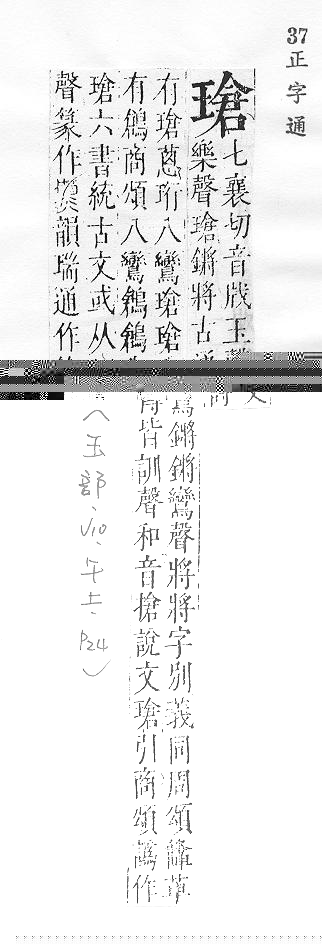 37正字通
瑲
七襄切音戕玉
樂聲瑲鏘將古
有瑲蔥珩八鸞瑲瑲
有鶬商頌八鸞鶬鶬
瑲六書統古文或从
聲篆作韻瑞通作
商
鸞鏘鏘鸞聲將將字別義同周頌鞗革
皆訓聲和音搶說文瑲引商頌譌作
(玉部、V10、午上、P24)